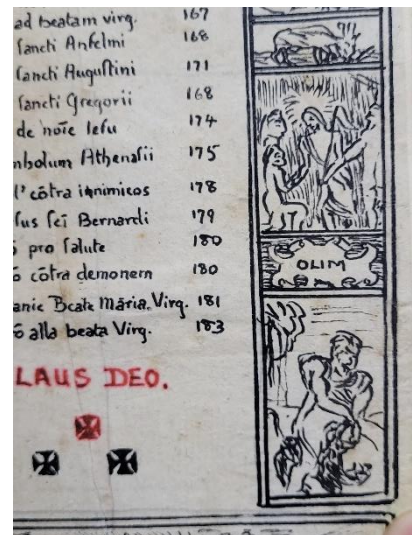 ad beatam virg. 167
ſancti Anſelmi 168
ſancti Auguſtini 171
ſancti Gregorii 168
de nōie Ieſu 174
mbolum Athenaſii 175
l' cōtra innimicos 178
ſus ſcī Bernardi 179
ō pro ſalute 180
ō cōtra demonem 180
anie Beate Māria. Virg. 181
ō alla beata Virg. 183
OLIM
LAUS DEO.